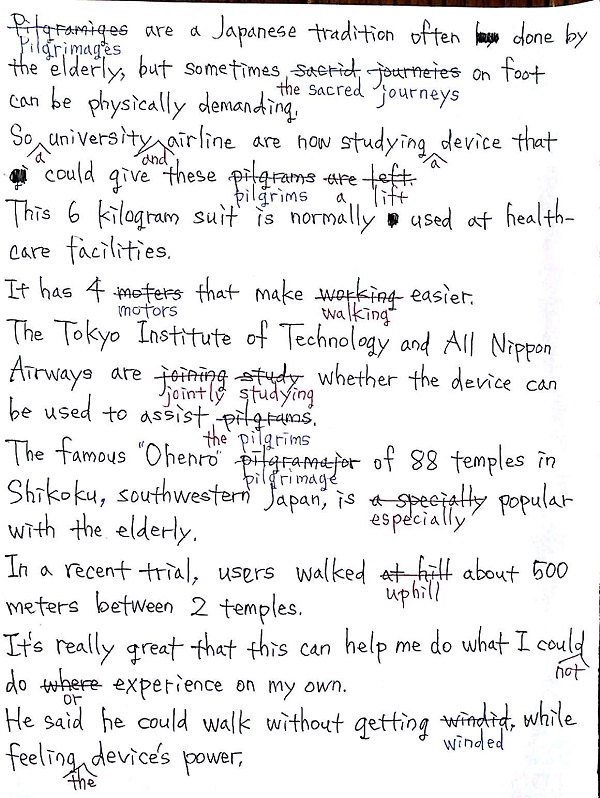 Pilgramiges are a Japanese tradition often done by
Pilgrimages
the elderly, but sometimes sacrid journeies on foot
the sacred journeys
can be physically demanding.
So university airline are now studying device that
a and a
could give these pilgrams are left.
pilgrims a lift
This 6 kilogram suit is normally used at health-
care facilities.
It has 4 moters that make working easier.
motors walking
The Tokyo Institute of Technology and All Nippon
Airways are joining study whether the device can
jointly studying
be used to assist pilgrams.
the pilgrims
The famous "Ohenro" pilgramajor of 88 temples in
pilgrimage
Shikoku, southwestern Japan, is a specially popular
especially
with the elderly.
In a recent trial, users walked at hill about 500
uphill
meters between 2 temples.
It's really great that this can help me do what I could
not
do where experience on my own.
or
He said he could walk without getting windid, while
winded
feeling device's power.
the